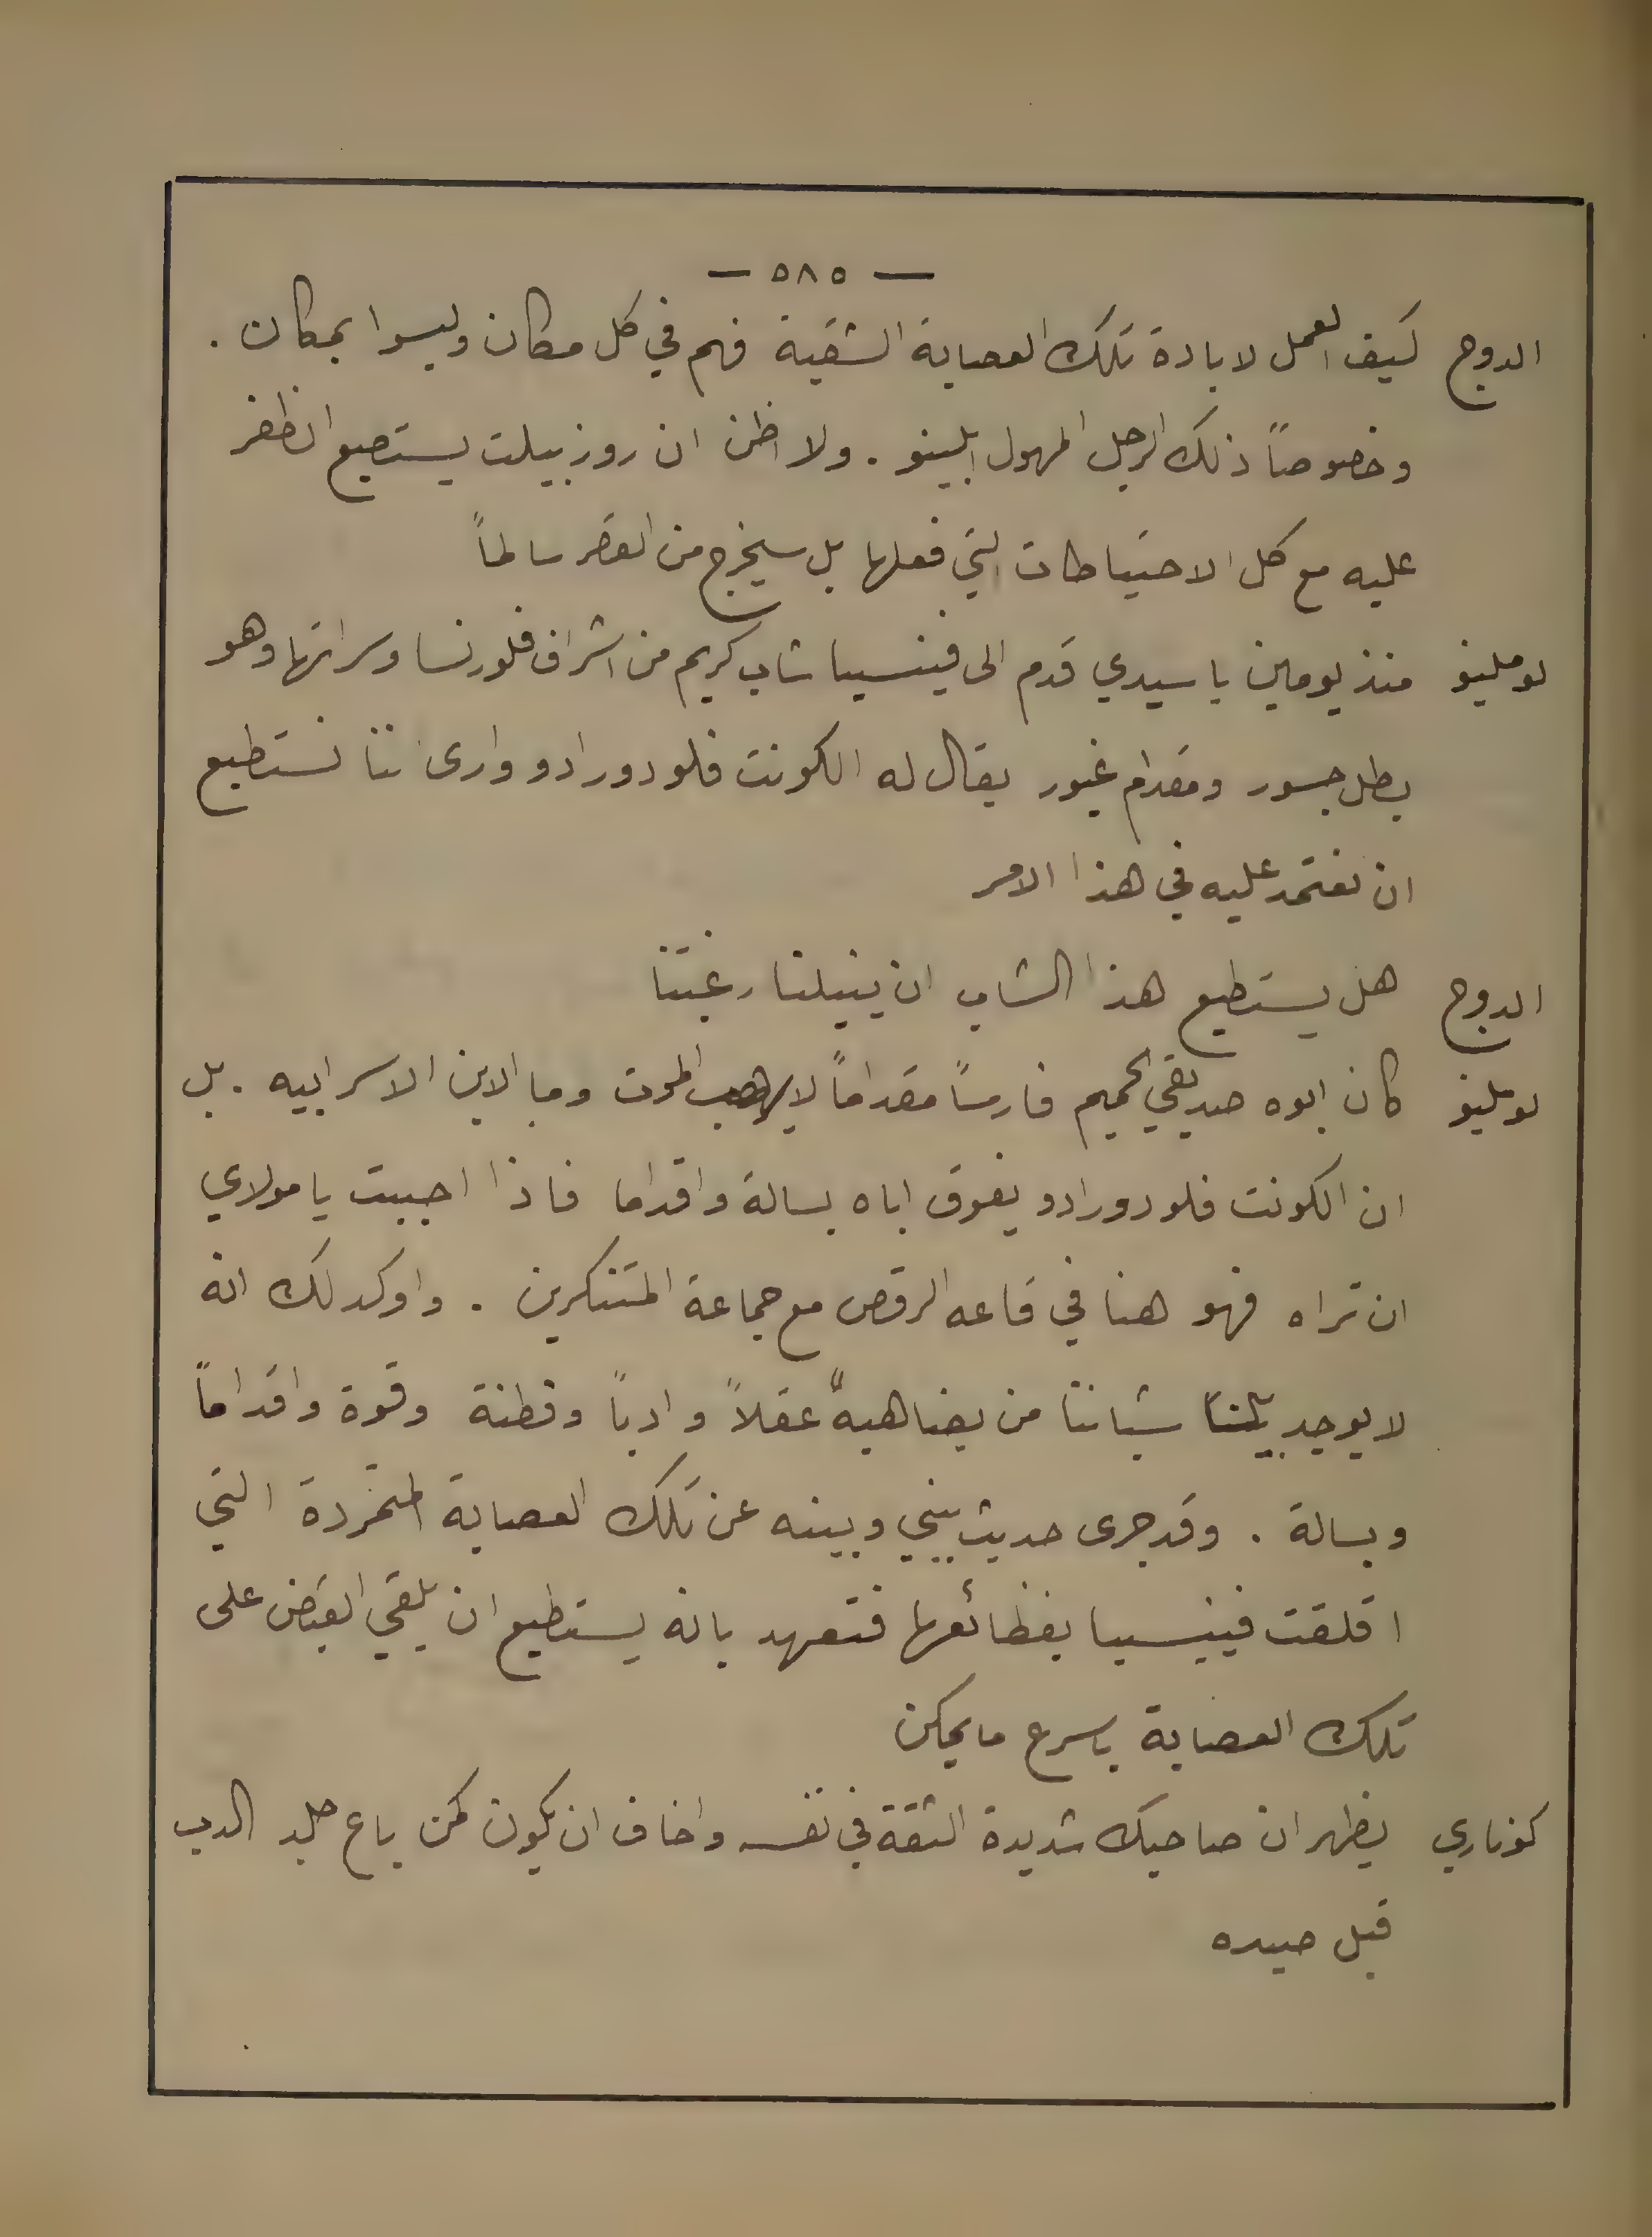 — ٥٨٥ —
الدوج كيف العمل لابادة تلك العصابة الشقية فهم في كل مكان وليسوا بمكان .
وخصوصاً ذلك الرجل المهول ابلينو . ولا اظن ان روزبيلت يستطيع الظفر
عليه مع كل الاحتياطات التي فعلها بل سيخرج من القصر سالماً
لوملينو منذ يومين يا سيدي قدم الى فينسيا شاب كريم من اشراف فلورنسا وسراتها وهو
بطل جسور ومقدام غيور يقال له الكونت فلودورادو وارى اننا نستطيع
ان نعتمد عليه في هذا الامر
الدوج هل يستطيع هذا الشاب ان ينيلنا رغبتنا
لوملينو كان ابوه صديقي الحميم فارساً مقداماً لا يهب الموت وما الابن الا سر ابيه . بل
ان الكونت فلودورادو يفوق اباه بسالة واقداما فاذا احببت يا مولاي
ان تراه فهو هنا في قاعه الرقص مع جماعة المتنكرين . واوكد لك انه
لا يوجد بين شباننا من يضاهيه عقلاً وادباً وفطنة وقوة واقداماً
وبسالة . وقد جرى حديث بيني وبينه عن تلك العصابة المتمردة التي
اقلقت فينيسيا بفظائعها فتعهد بانه يستطيع ان يلقي القبض على
تلك العصابة باسرع ما يمكن
كوناري يظهر ان صاحبك شديدة الثقة في نفسه واخاف ان يكون كمن باع جلد الدب
قبل صيده